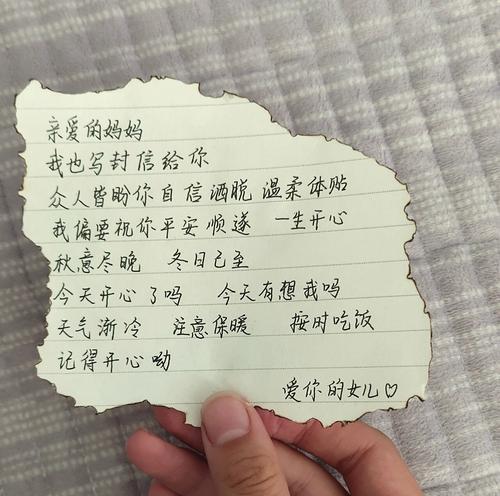 亲爱的妈妈
我也写封信给你
众人皆盼你自信洒脱 温柔体贴
我偏要祝你平安顺遂 一生开心
秋意尽晚 冬日已至
今天开心了吗 今天有想我吗
天气渐冷 注意保暖 按时吃饭
记得开心呦
爱你的女儿♡